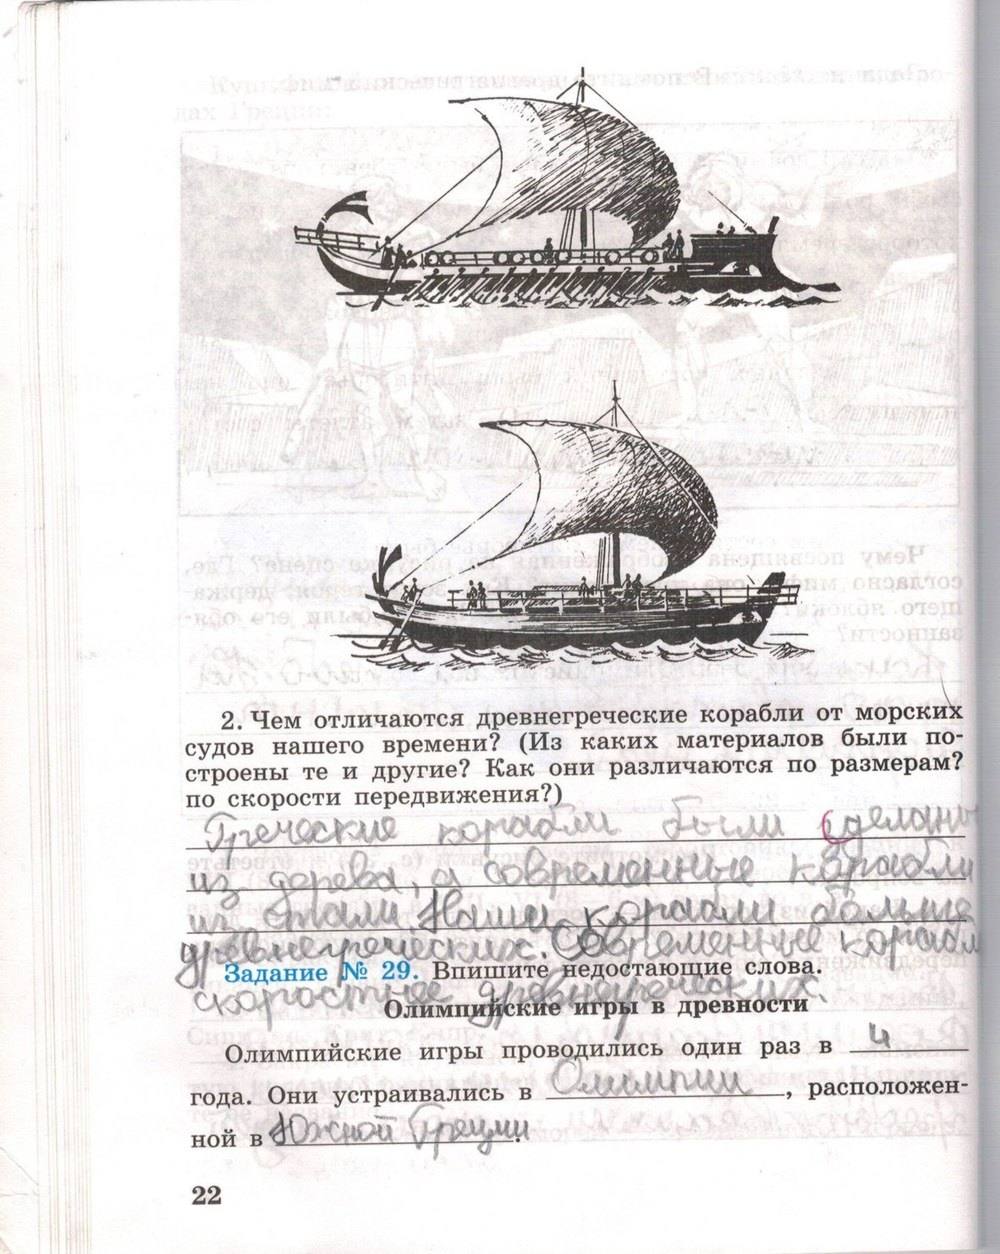 2. Чем отличаются древнегреческие корабли от морских
судов нашего времени? (Из каких материалов были по-
строены те и другие? Как они различаются по размерам?
по скорости передвижения?)
Греческие корабли были сделаны
из дерева, а современные корабли
из стали. Наши корабли больше
древнегреческих. Современные корабл
Задание № 29. Впишите недостающие слова.
скоростнее древнегреческих.
Олимпийские игры в древности
Олимпийские игры проводились один раз в 4
года. Они устраивались в Олимпии, расположен-
ной в Южной Греции.
22